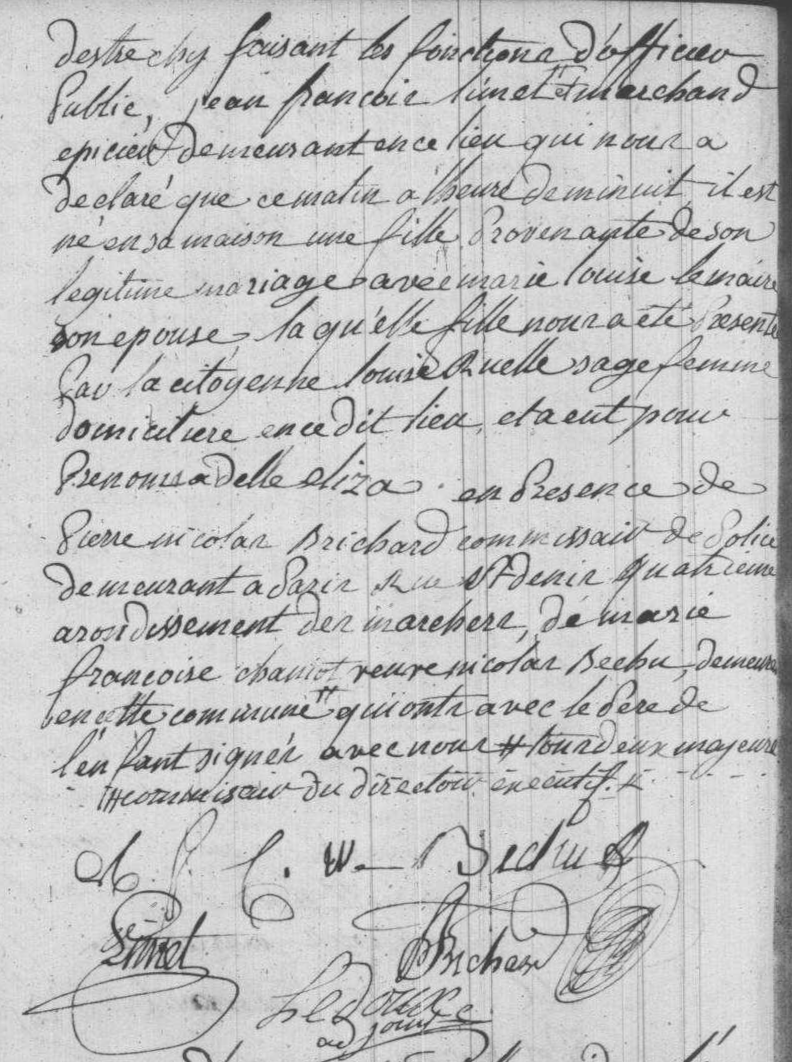 destrechy faisant les fonctions d'officier
Public, jean francois limet # et marchand
epicier demeurant en ce lieu qui nous a
declaré que ce matin a lheure de minuit, il est
né en sa maison une fille Provenante de son
legitime mariage avec marie louise lemaire
son epouse, laqu'elle fille nous a eté Presenté
Par la citoyenne louise Ruelle sage femme
domiciliere en ce dit lieu, et a eut pour
Prenoms adelle eliza. en Presence de
Pierre nicolas Brichard commissair de Police
demeurant a Paris Rue St denis quatrieme
arondissement des marchers, de marie
francoise veuve nicolas Bechu, demeure
en cette commune # qui onts avec le Pere de
l'enfant signés avec nous # tous deux majeure
# commissair du directoir executif.
M f C. v. Bechu
Limet
Brichard
Ledoux
adjoint